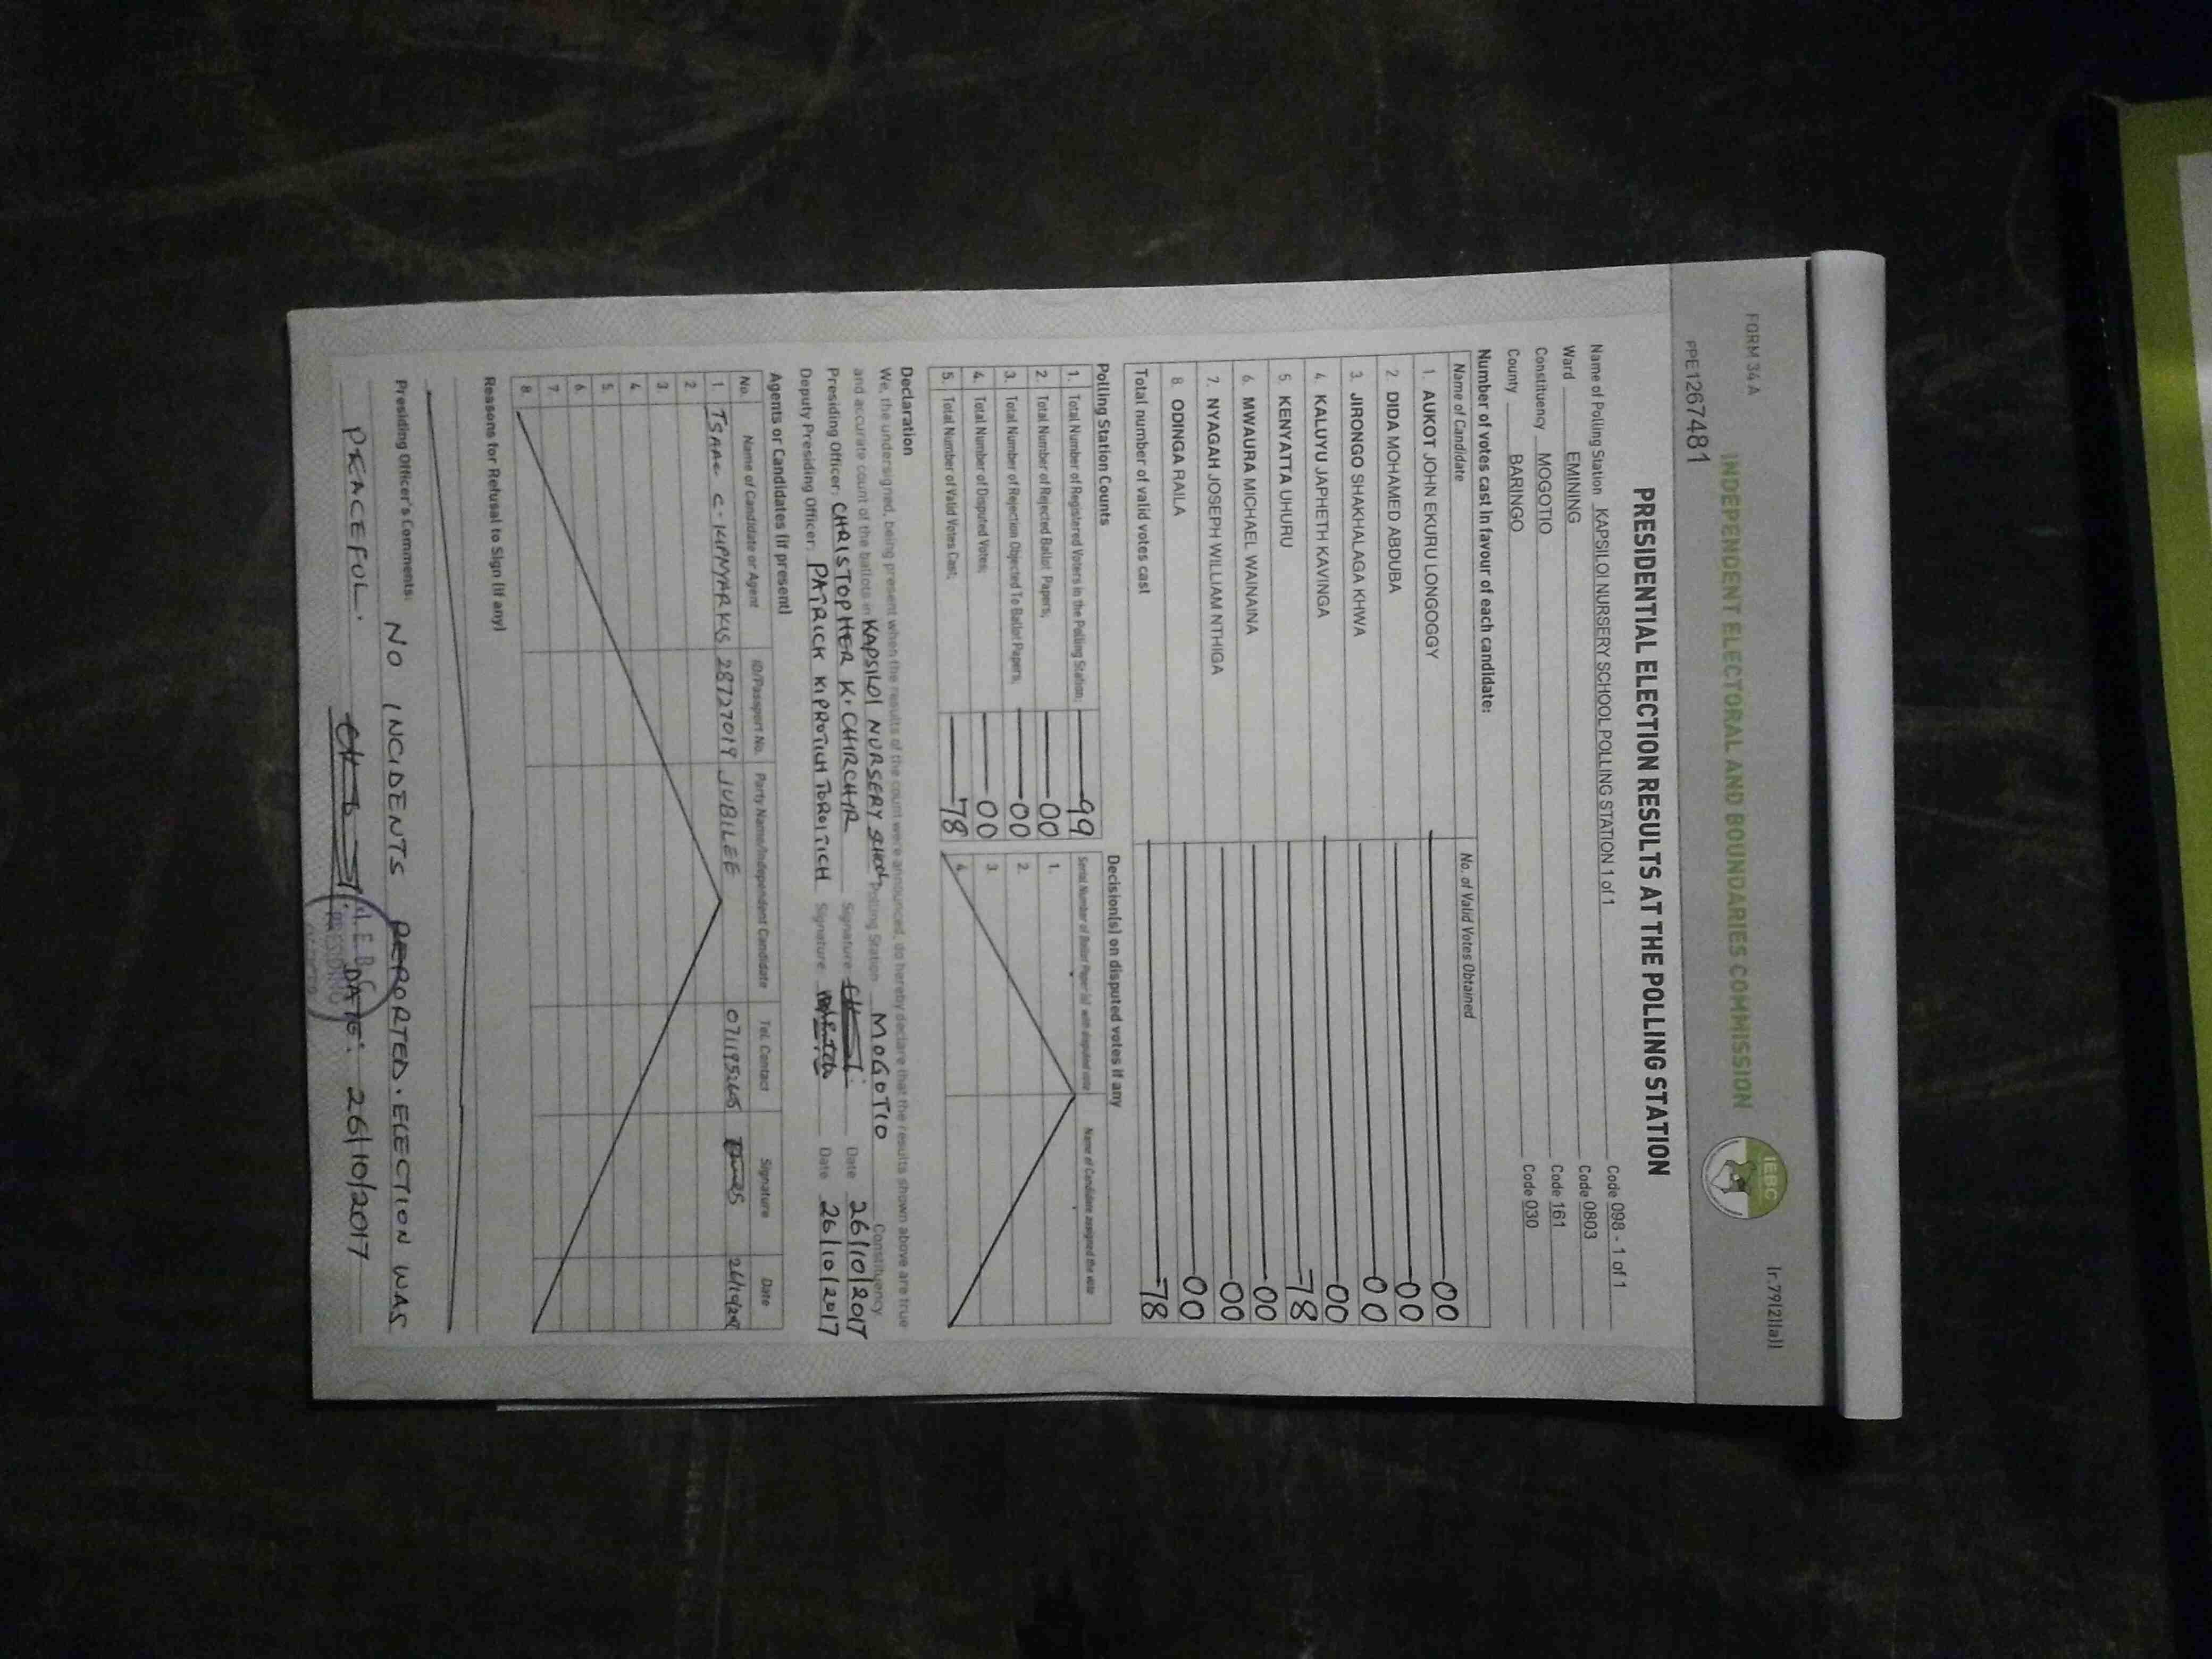 FORM 34 A
Ir.79(2)(a))
INDEPENDENT ELECTORAL AND BOUNDARIES COMMISSION
IEBC
PPE1267481
PRESIDENTIAL ELECTION RESULTS AT THE POLLING STATION
Name of Polling Station KAPSILOI NURSERY SCHOOL POLLING STATION 1 of 1 Code 098 - 1 of 1
Ward EMINING Code 0803
Constituency MOGOTIO Code 161
County BARINGO Code 030
Number of votes cast in favour of each candidate:
Name of Candidate No. of Valid Votes Obtained
1. AUKOT JOHN EKURU LONGOGGY 00
2. DIDA MOHAMED ABDUBA 00
3. JIRONGO SHAKHALAGA KHWA 00
4. KALUYU JAPHETH KAVINGA 00
5. KENYATTA UHURU 78
6. MWAURA MICHAEL WAINAINA 00
7. NYAGAH JOSEPH WILLIAM NTHIGA 00
8. ODINGA RAILA 00
Total number of valid votes cast 78
Polling Station Counts
1. Total Number of Registered Voters in the Polling Station; 99
2. Total Number of Rejected Ballot Papers; 00
3. Total Number of Rejection Objected To Ballot Papers; 00
4. Total Number of Disputed Votes; 00
5. Total Number of Valid Votes Cast; 78
Decision(s) on disputed votes if any
Serial Number of Ballot Paper (s) with disputed vote Name of Candidate assigned the vote
1.
2.
3.
4.
Declaration
We, the undersigned, being present when the results of the count were announced, do hereby declare that the results shown above are true
and accurate count of the ballots in KAPSILOI NURSERY Polling Station MOGOTIO Constituency
Presiding Officer: CHRISTOPHER K. CHIRCHIR Signature Date 26/10/2017
Deputy Presiding Officer: PATRICK KIPROTICH TOROITICH Signature Date 26/10/2017
Agents or Candidates (if present)
No. Name of Candidate or Agent ID/Passport No. Party Name/Independent Candidate Tel. Contact Signature Date
1. ISAAC C. 28727019 JUBILEE
2.
3.
4.
5.
6.
7.
8.
Reasons for Refusal to Sign (if any)
Presiding Officer's Comments: NO INCIDENTS REPORTED. ELECTION WAS
PEACEFUL. DATE: 26/10/2017
I.E.B.C
PRESIDING